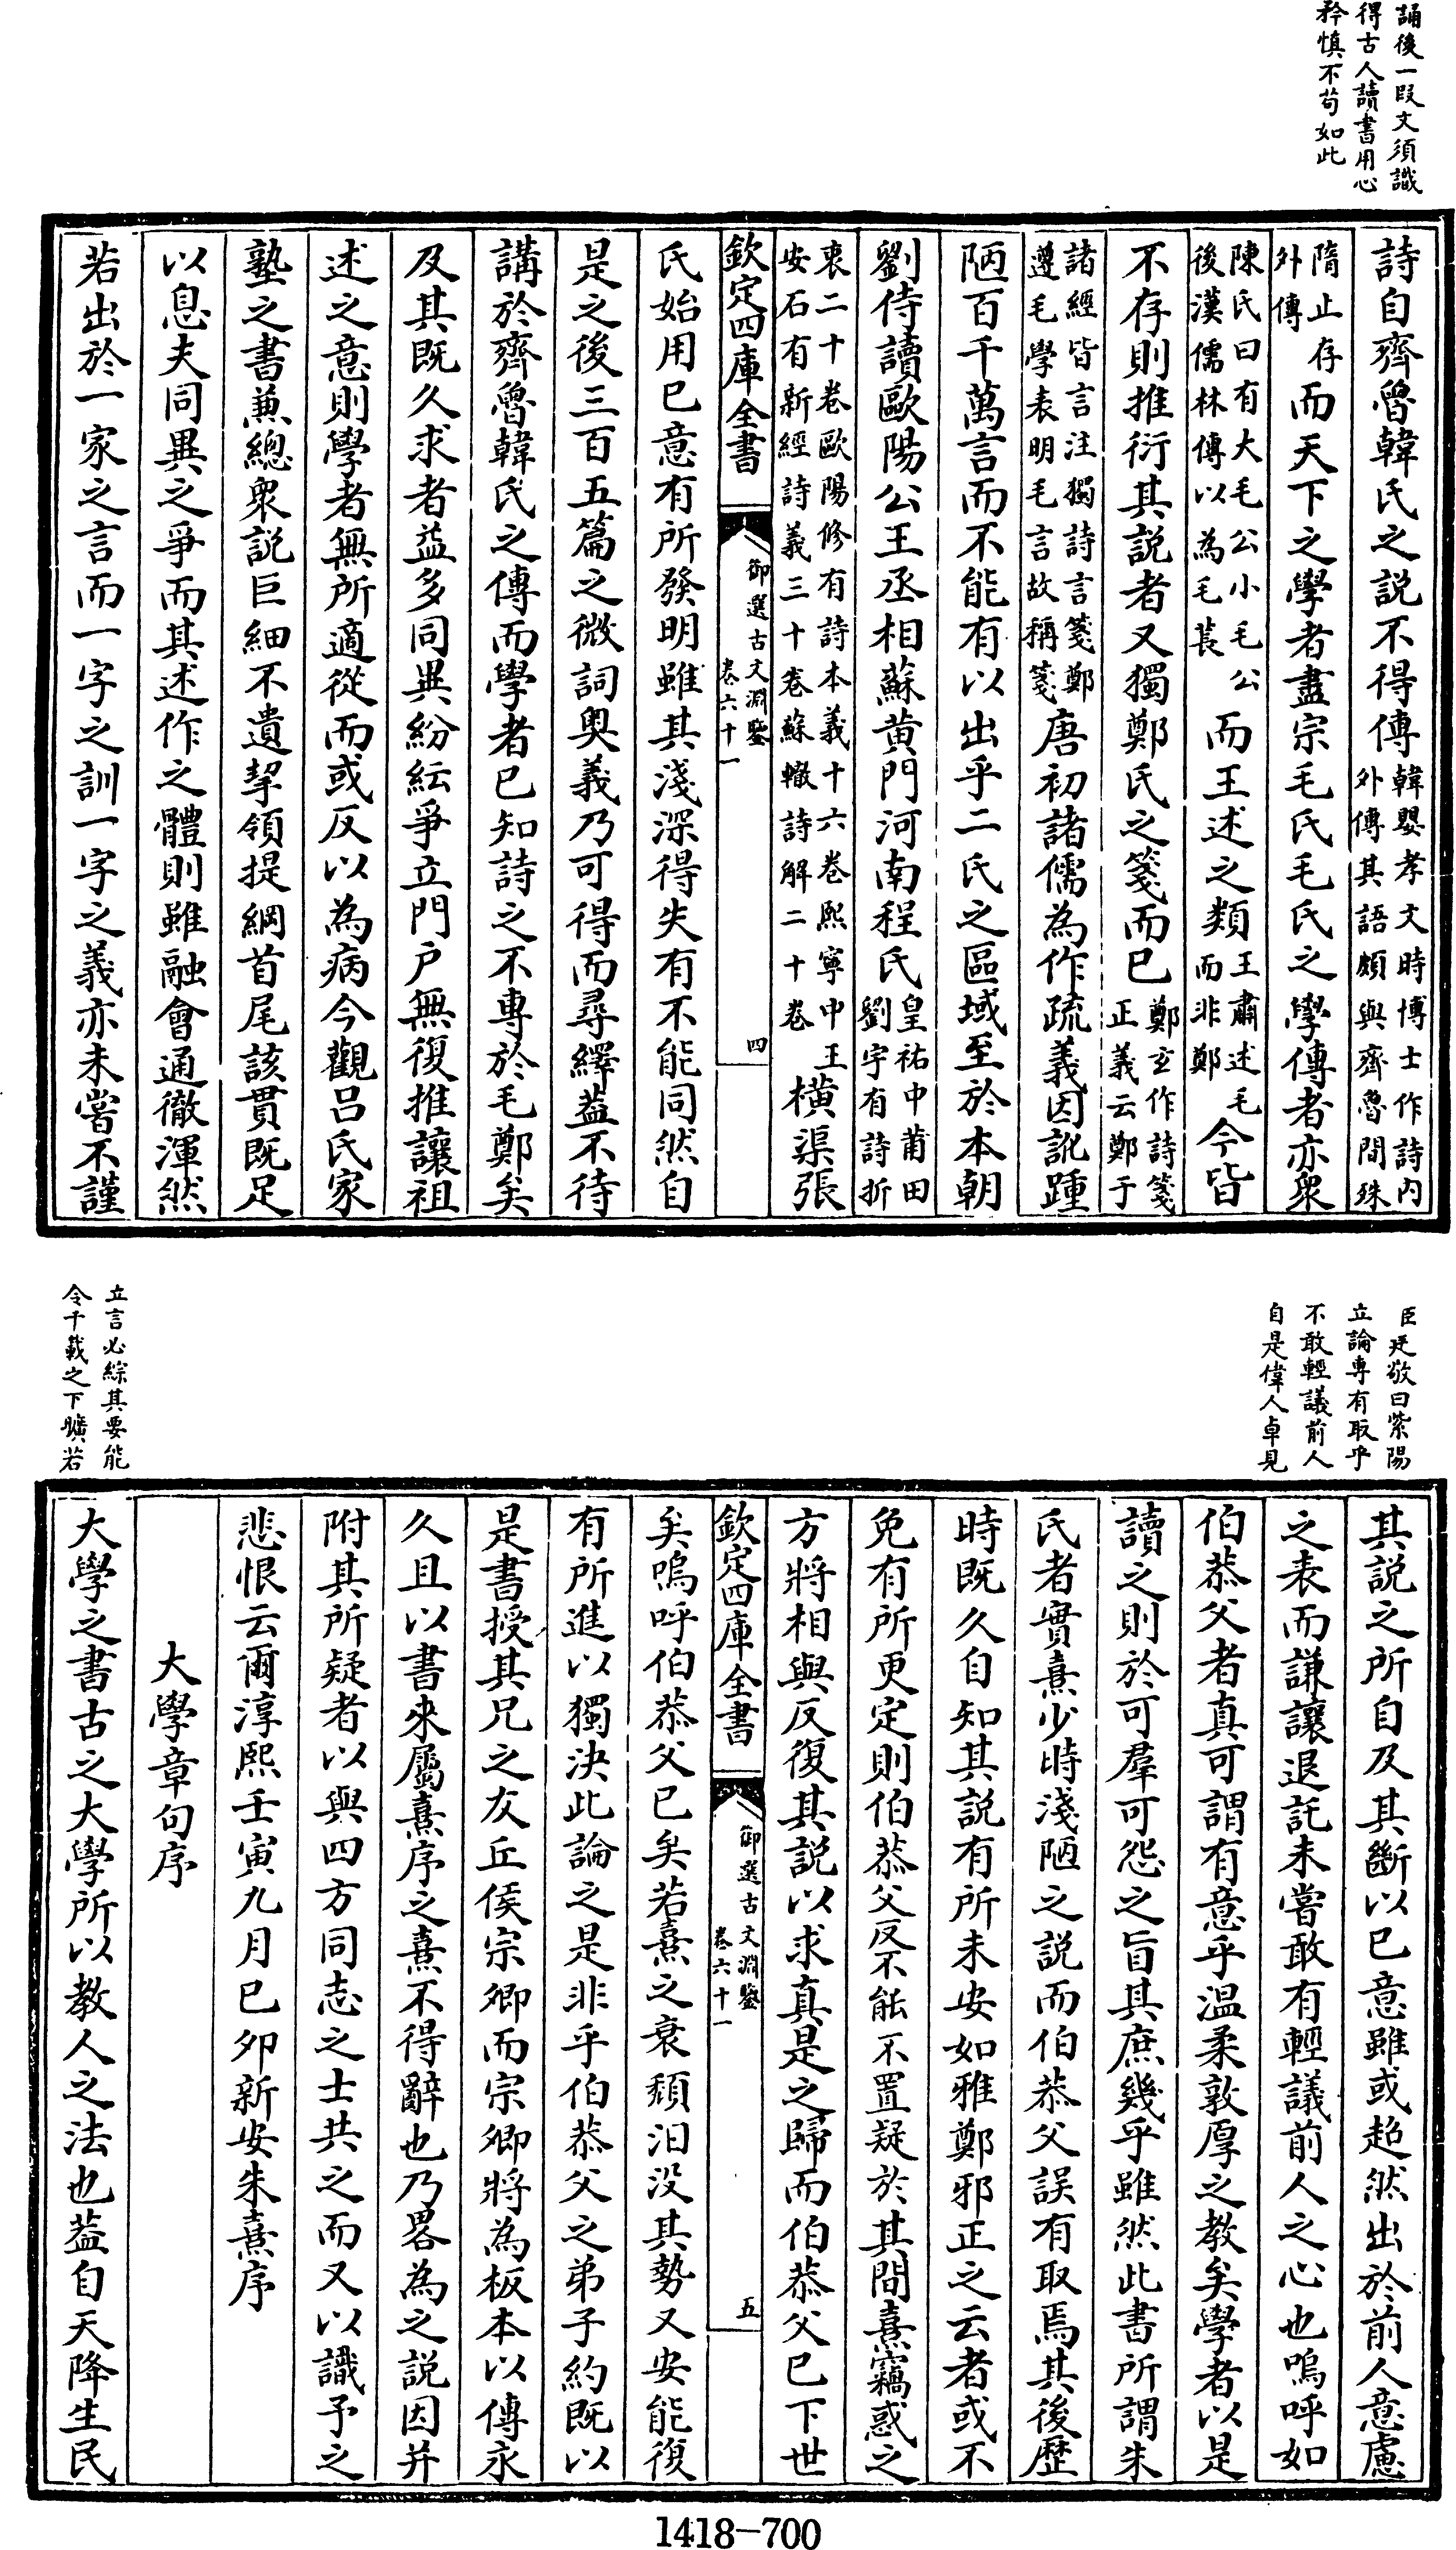 誦後一段文須識
得古人讀書用心
矜慎不苟如此
詩自齊魯韓氏之説不得傳韓嬰孝文時博士作詩内外傳其語頗與齊魯間殊
隋止存外傳而天下之學者盡宗毛氏毛氏之學傳者亦衆
陳氏曰有大毛公小毛公後漢儒林傳以為毛萇而王述之類王肅述毛而非鄭今皆
不存則推衍其説者又獨鄭氏之箋而已鄭玄作詩箋正義云鄭于
諸經皆言注獨詩言箋鄭遵毛學表明毛言故稱箋唐初諸儒為作疏義因訛踵
陋百千萬言而不能有以出乎二氏之區域至於本朝
劉侍讀歐陽公王丞相蘇黄門河南程氏皇祐中莆田劉宇有詩折
衷二十卷歐陽修有詩本義十六卷熙寧中王安石有新經詩義三十卷蘇轍詩解二十卷橫渠張
欽定四庫全書
御選古文淵鑒
卷六十一
四
氏始用已意有所發明雖其淺深得失有不能同然自
是之後三百五篇之微詞奥義乃可得而尋繹葢不待
講於齊魯韓氏之傳而學者已知詩之不專於毛鄭矣
及其既久求者益多同異紛紜爭立門户無復推讓祖
述之意則學者無所適從而或反以為病今觀吕氏家
塾之書兼總衆説巨細不遺挈領提綱首尾該貫既足
以息夫同異之爭而其述作之體則雖融會通徹渾然
若出於一家之言而一字之訓一字之義亦未嘗不謹
臣廷敬曰紫陽
立論專有取乎
不敢輕議前人
自是偉人卓見
立言必綜其要能
令千載之下曠若
其説之所自及其斷以已意雖或超然出於前人意慮
之表而謙讓退託未嘗敢有輕議前人之心也嗚呼如
伯恭父者真可謂有意乎温柔敦厚之教矣學者以是
讀之則於可羣可怨之旨其庶幾乎雖然此書所謂朱
氏者實熹少時淺陋之説而伯恭父誤有取焉其後歷
時既久自知其説有所未安如雅鄭邪正之云者或不
免有所更定則伯恭父反不能不置疑於其間熹竊惑之
方將相與反復其説以求真是之歸而伯恭父已下世
欽定四庫全書
御選古文淵鑒
卷六十一
五
矣嗚呼伯恭父已矣若熹之衰頽汩没其勢又安能復
有所進以獨決此論之是非乎伯恭父之弟子約既以
是書授其兄之友丘侯宗卿而宗卿將為板本以傳永
久且以書來屬熹序之熹不得辭也乃畧為之説因并
附其所疑者以與四方同志之士共之而又以識予之
悲恨云爾淳熙壬寅九月已卯新安朱熹序
大學章句序
大學之書古之大學所以教人之法也葢自天降生民
1418-700